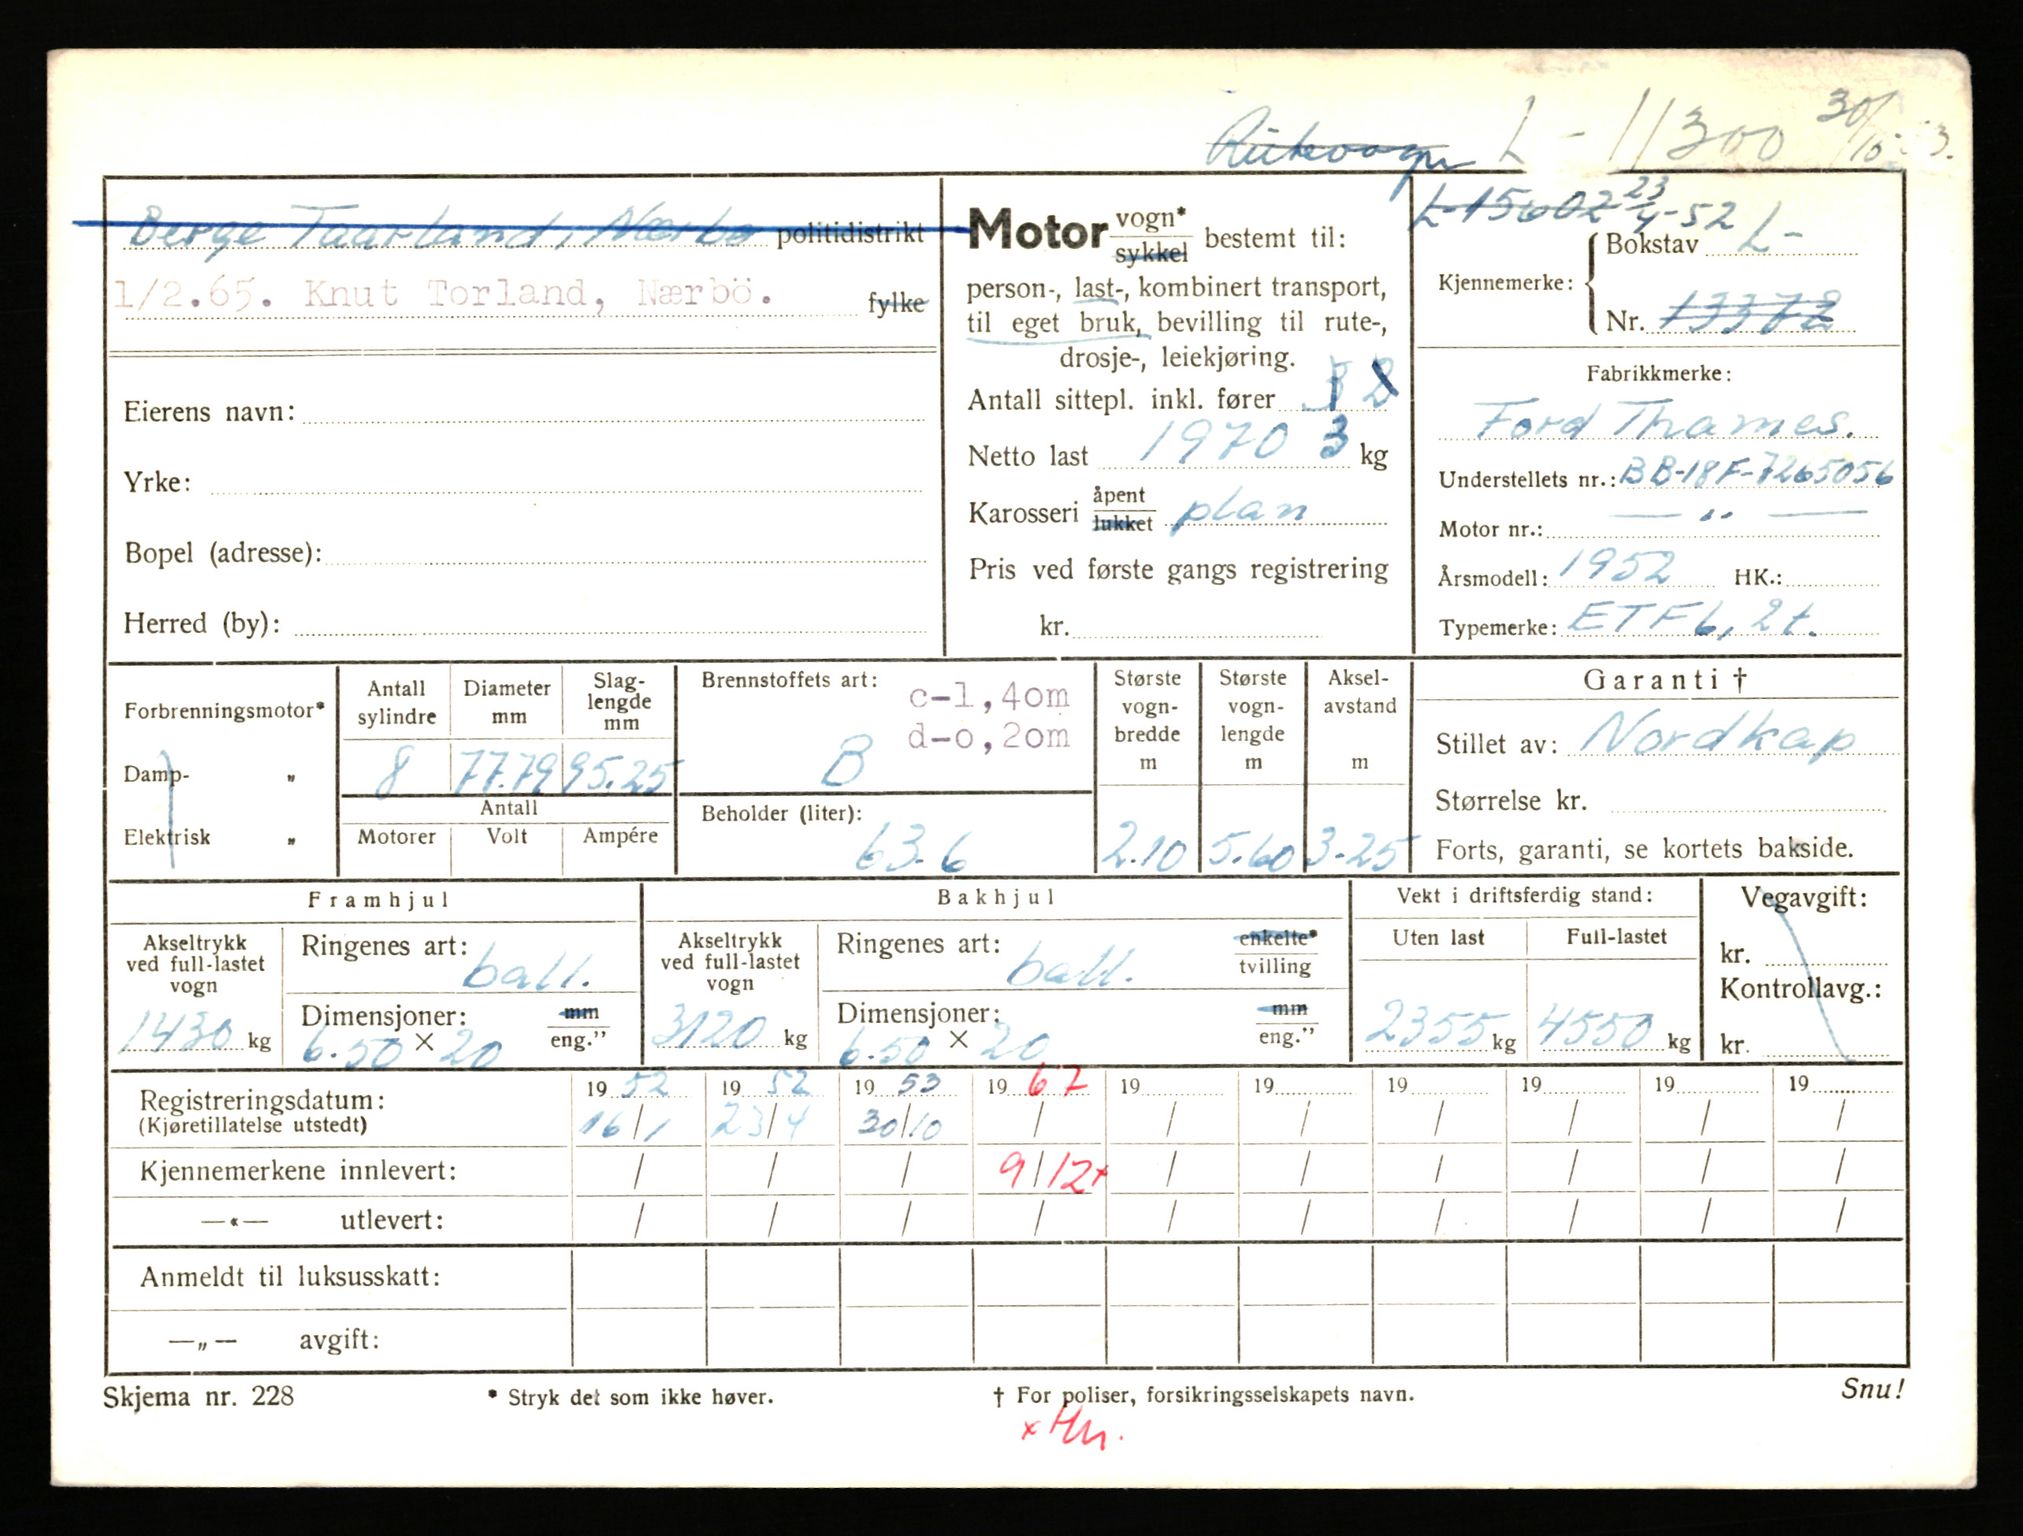 Rutevogn L - 11300 30/10-53.
Berge Taarland, Nærbø politidistrikt
1/2.65. Knut Torland, Nærbö. fylke
Eierens navn:
Yrke:
Bopel (adresse):
Herred (by):
Motor vogn* sykkel bestemt til:
person-, last-, kombinert transport,
til eget bruk, bevilling til rute-,
drosje-, leiekjøring.
Antall sittepl. inkl. fører
Netto last 1970 3 kg
Karosseri åpent lukket plan
Pris ved første gangs registrering
kr.
L-15602 23/4-52
Kjennemerke: Bokstav L-
Nr. 13372
Fabrikkmerke:
Ford Thames.
Understellets nr.: BB-18F-7265056
Motor nr.: — „ —
Årsmodell: 1952 HK.:
Typemerke: ETF6, 2t.
Forbrenningsmotor*
Damp- „
Elektrisk „
Antall sylindre Diameter mm Slaglengde mm
8 77.79 95.25
Antall
Motorer Volt Ampére
Brennstoffets art: c-1,4om
d-o,2om
B
Beholder (liter):
63.6
Største vognbredde m Største vognlengde m Akselavstand m
2.10 5.60 3.25
Garanti †
Stillet av: Nordkap
Størrelse kr.
Forts, garanti, se kortets bakside.
Framhjul
Akseltrykk ved full-lastet vogn
1430 kg
Ringenes art: ball.
Dimensjoner: mm
6.50 × 20 eng.”
Bakhjul
Akseltrykk ved full-lastet vogn
3120 kg
Ringenes art: ball. enkelte* tvilling
Dimensjoner: mm
6.50 × 20 eng.”
Vekt i driftsferdig stand:
Uten last Full-lastet
2355 kg 4550 kg
Vegavgift:
kr.
Kontrollavg.:
kr.
Registreringsdatum: 19 52 19 52 19 53 19 67 19 19 19 19 19 19
(Kjøretillatelse utstedt) 16/1 23/4 30/10 / / / / / / /
Kjennemerkene innlevert: / / / 9/12x / / / / / /
—«— utlevert: / / / / / / / / / /
Anmeldt til luksusskatt:
—„— avgift:
Skjema nr. 228 * Stryk det som ikke høver. † For poliser, forsikringsselskapets navn. Snu!
x Hm.